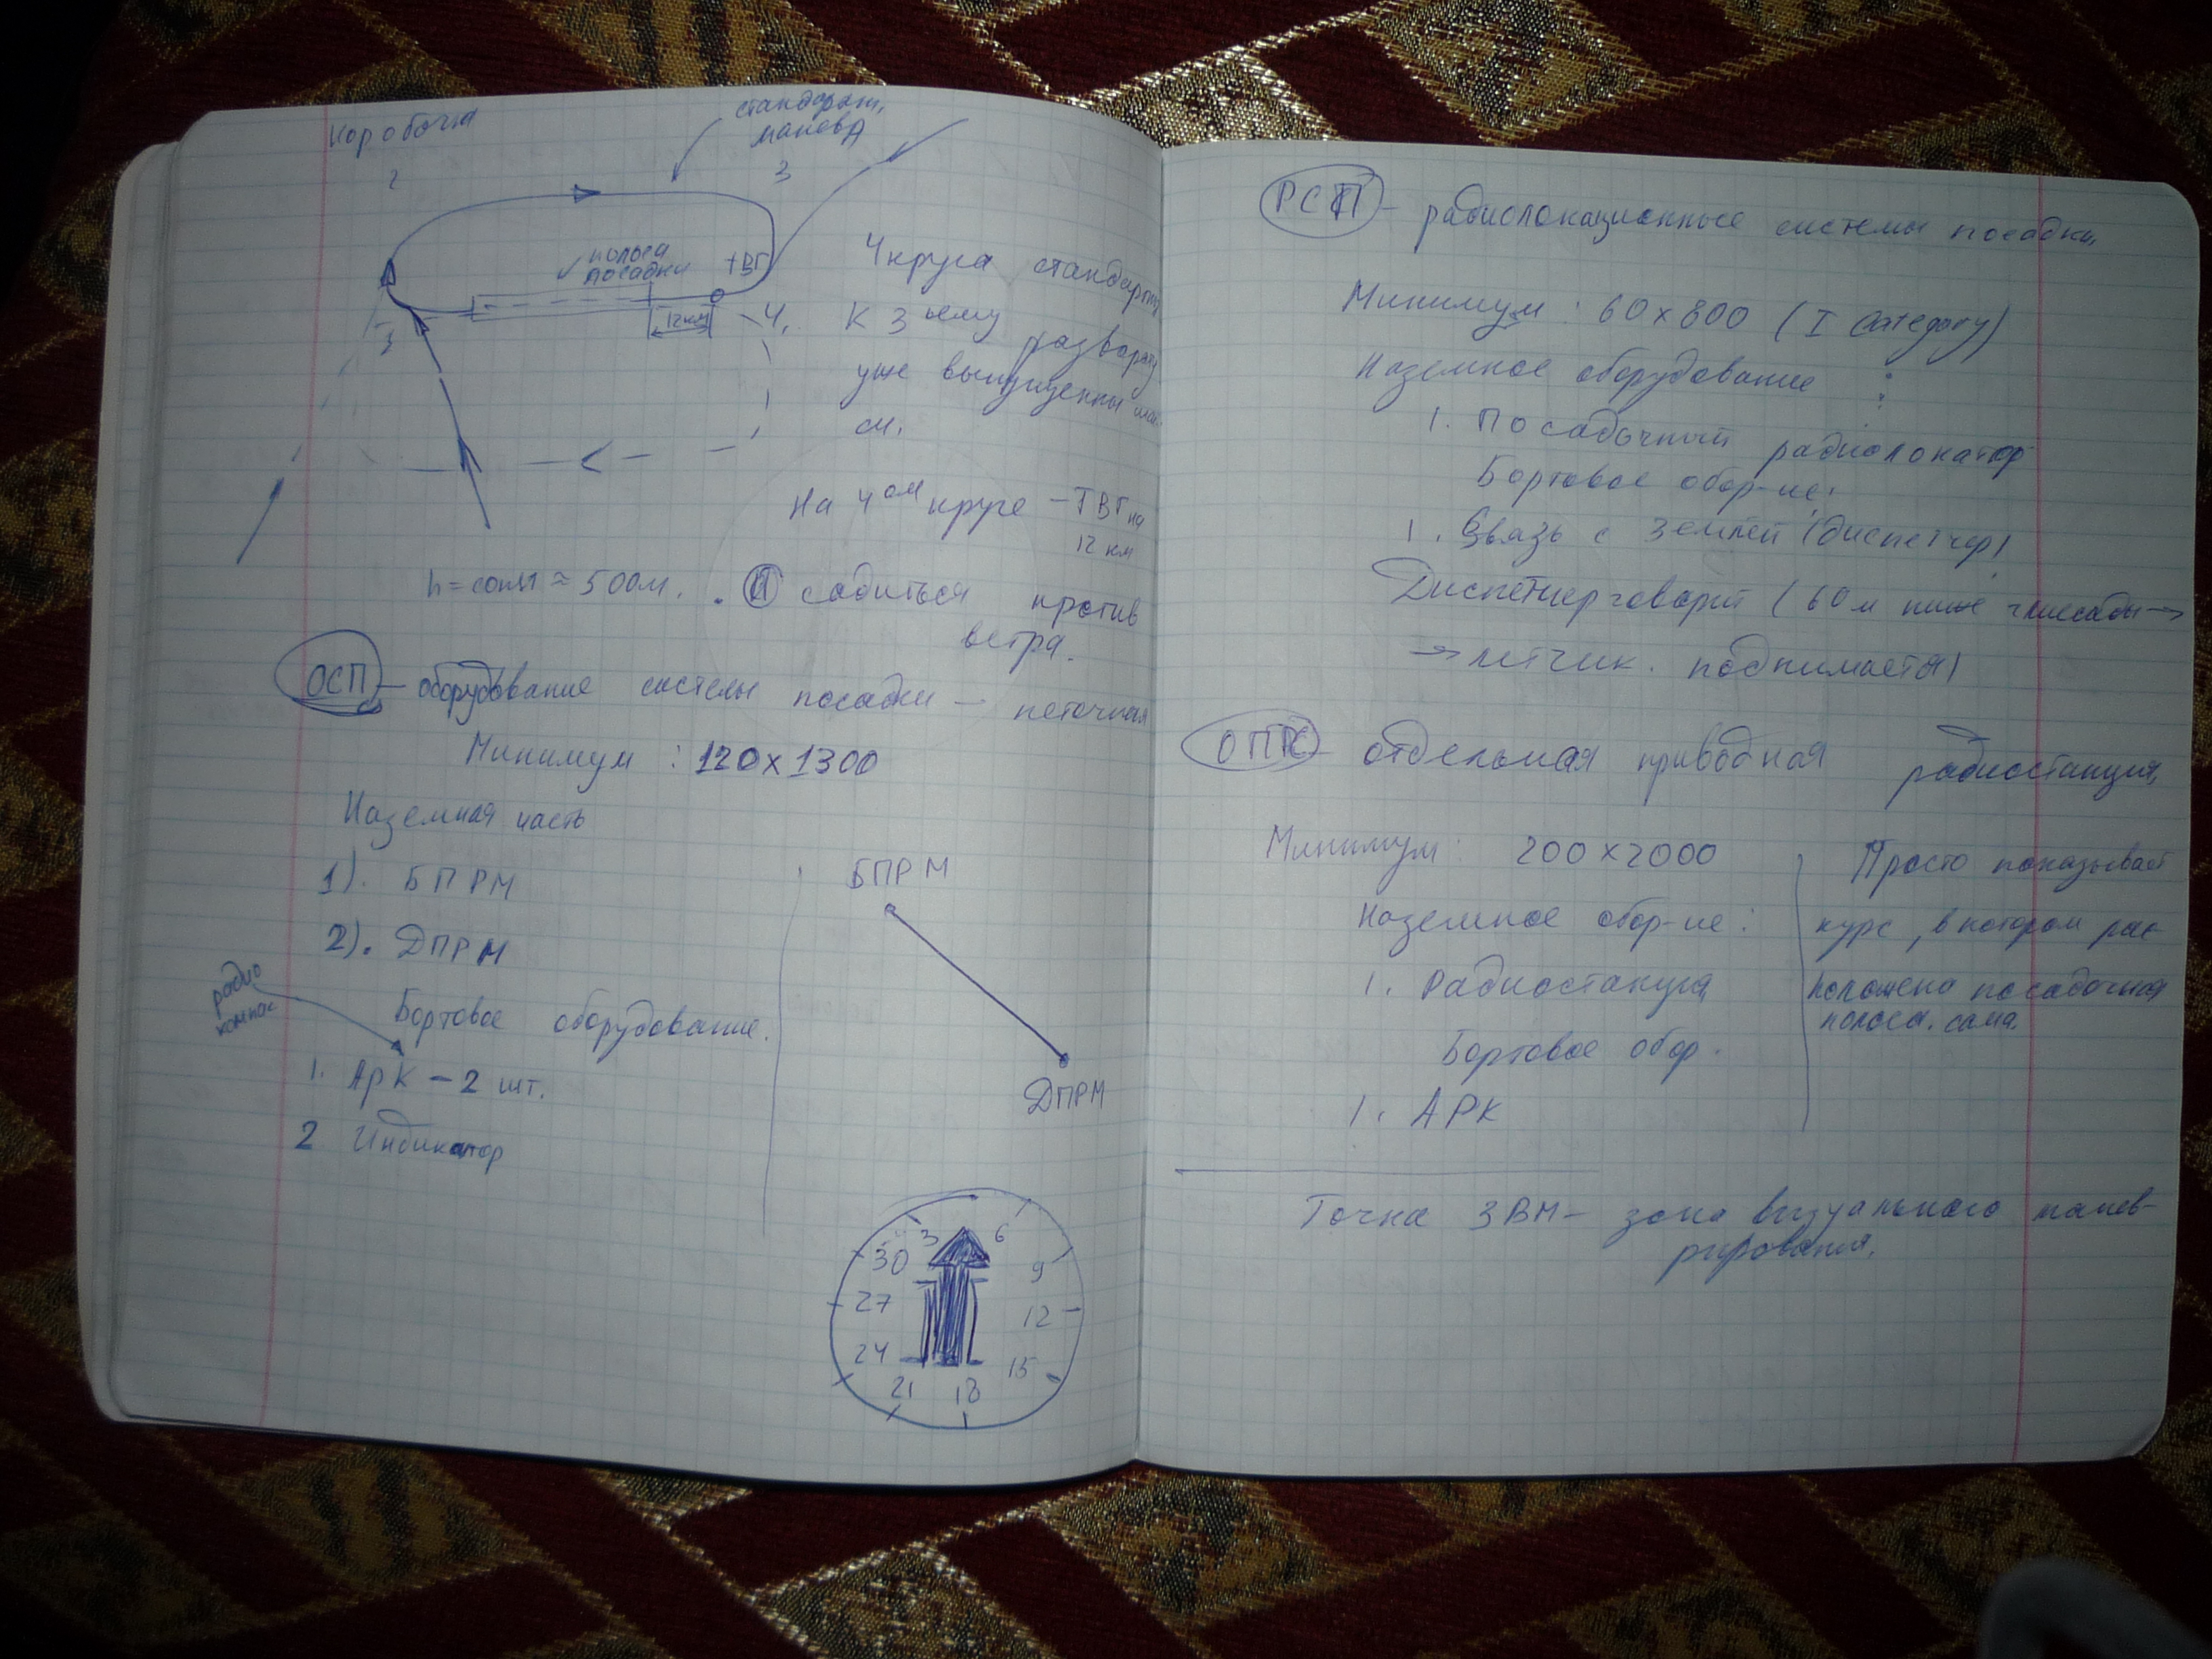 Коробочка
стандарт.
манёвр
2
3
полоса
посадки
ТВГ
12 км
4.
4 круга стандарт
К 3 ьему развороту
уже выпущенны
см.
На 4 ом круге - ТВГ на
12 км
h = const ≈ 500м.
садиться против
ветра.
ОСП - оборудование системы посадки - неточная
Минимум : 120 х 1300
Наземная часть
1). БПРМ
2). ДПРМ
БПРМ
ДПРМ
радио
компас
Бортовое оборудование.
1. АРК - 2 шт.
2 Индикатор
3 6
30 9
27 12
24 15
21 18
РСП - радиолокационные системы посадки
Минимум : 60 х 800 (I Category)
Наземное оборудование :
1. Посадочный радиолокатор
Бортовое обор-ие:
1. Связь с землёй (диспетчер)
Диспетчер говорит (60 м ниже глиссады →
→ летчик. поднимается)
ОПРС - отдельная приводная радиостанция.
Минимум : 200 х 2000
Наземное обор-ие :
1. Радиостанция
Бортовое обор.
1. АРК
Просто показывает
курс, в котором рас-
положено посадочная
полоса. сама.
Точка ЗВМ - зона визуального манев-
рирования.